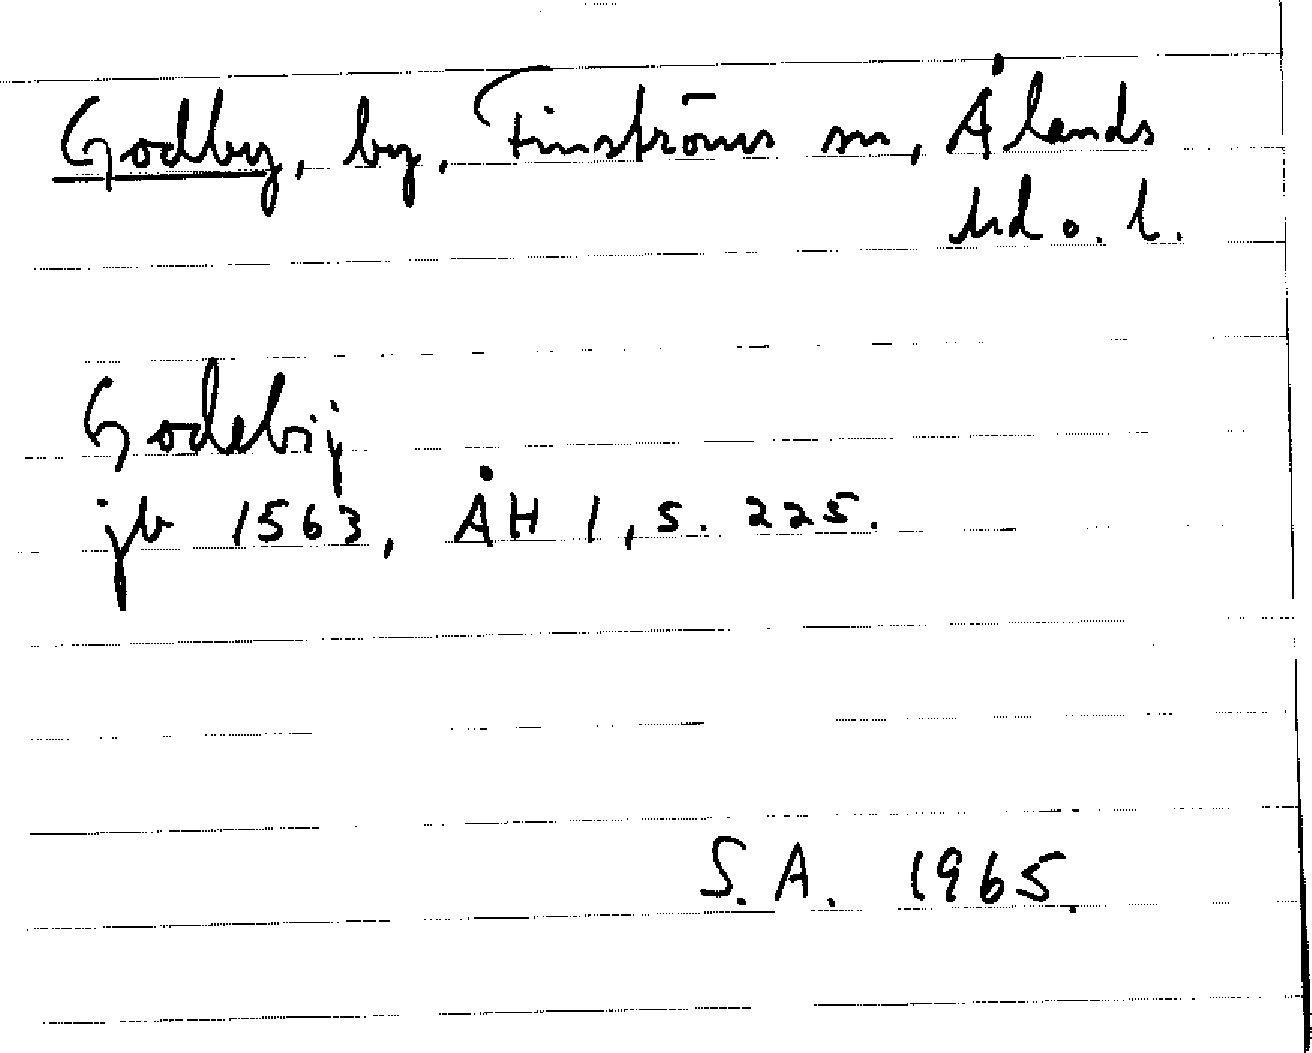 Godby, by, Finströms sn, Ålands
hd o. l.
Godebij
jb 1563, ÅH 1, s. 225.
S.A. 1965.